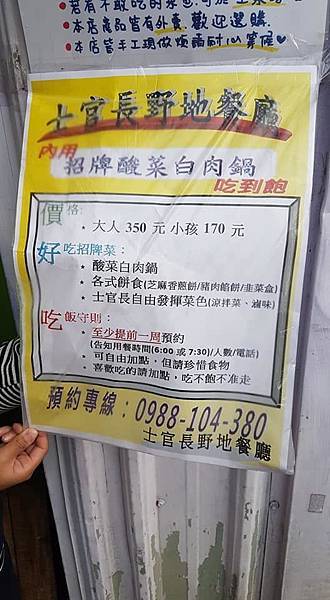 本店產品皆有外賣.歡迎選購.
本店皆手工現做煩請耐心等候♥
士官長野地餐廳
內用
招牌酸菜白肉鍋
吃到飽
價格:
• 大人 350 元 小孩 170 元
好吃招牌菜:
• 酸菜白肉鍋
• 各式餅食(芝麻香蔥餅/豬肉餡餅/韭菜盒)
• 士官長自由發揮菜色(涼拌菜、滷味)
吃飯守則:
• 至少提前一周預約
(告知用餐時間(6:00 或 7:30)/人數/電話)
• 可自由加點,但請珍惜食物
• 喜歡吃的請加點,吃不飽不准走
預約專線:0988-104-380
士官長野地餐廳